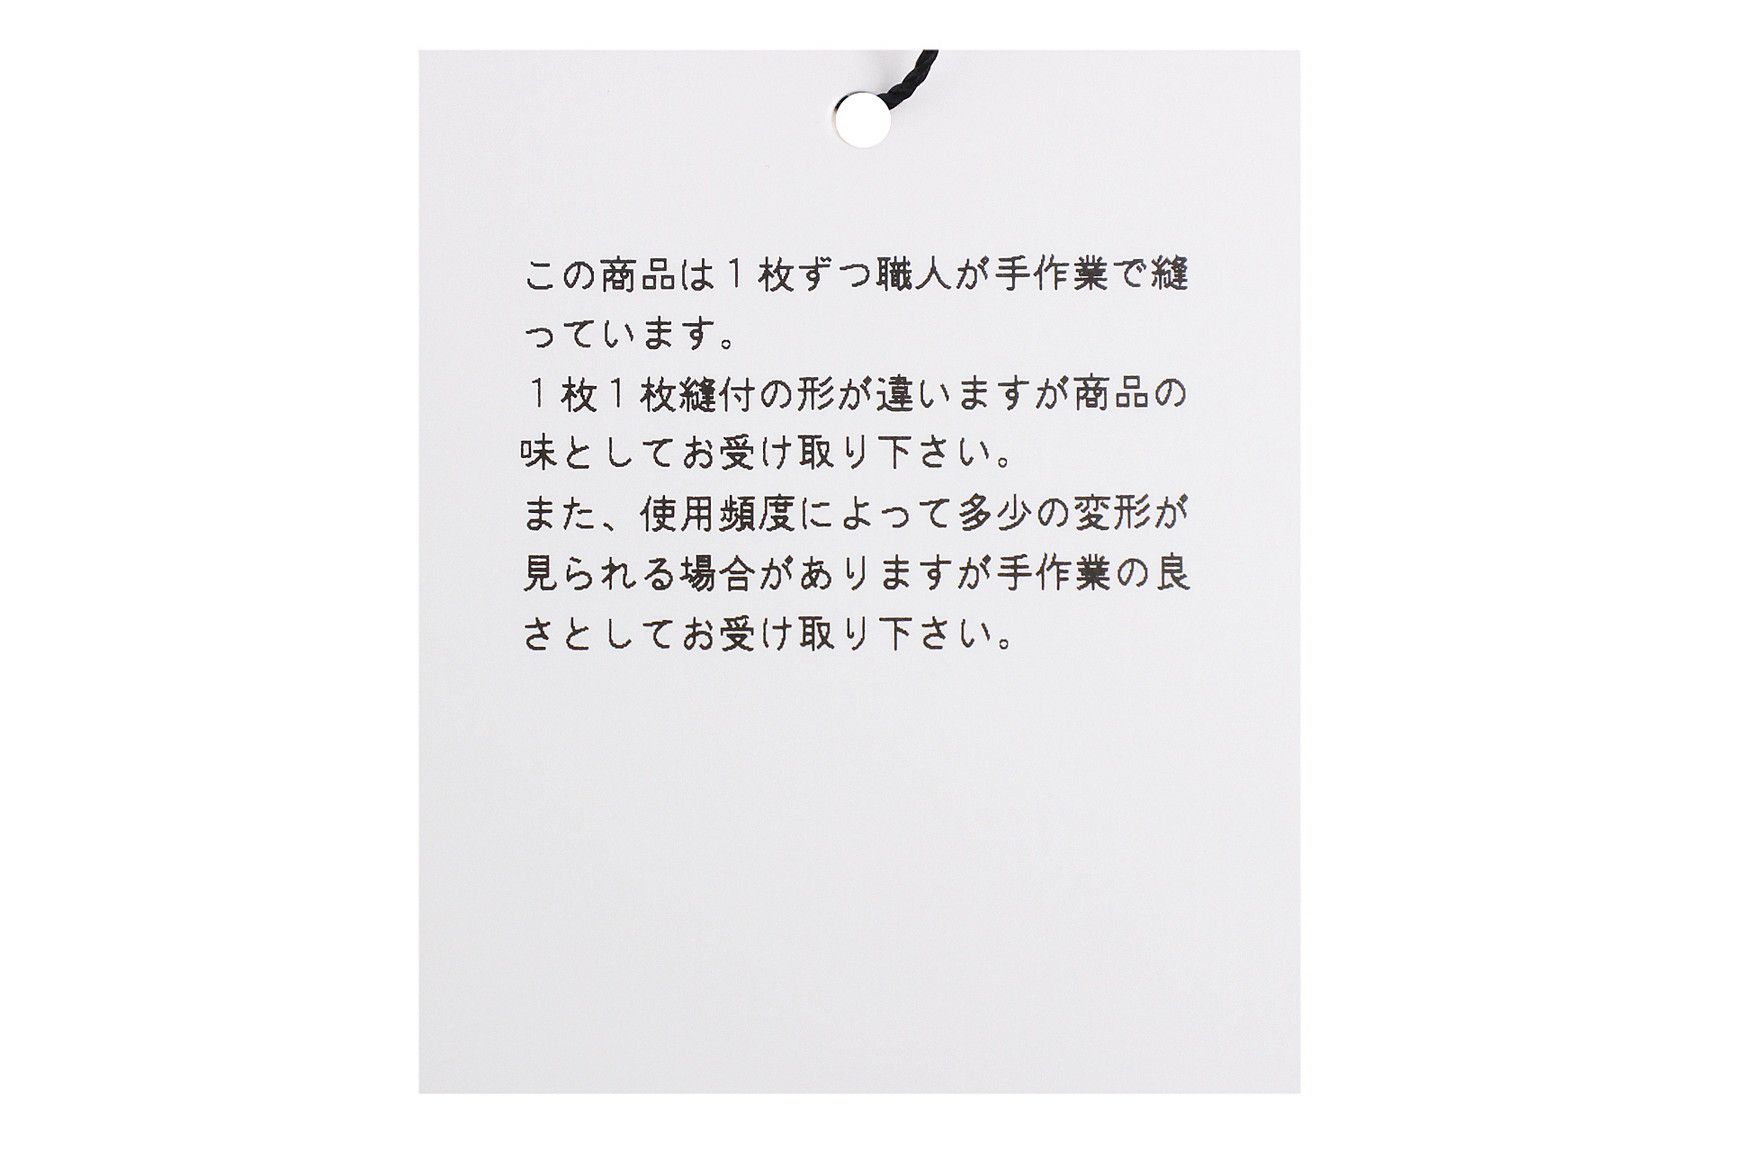 この商品は１枚ずつ職人が手作業で縫
っています。
１枚１枚縫付の形が違いますが商品の
味としてお受け取り下さい。
また、使用頻度によって多少の変形が
見られる場合がありますが手作業の良
さとしてお受け取り下さい。